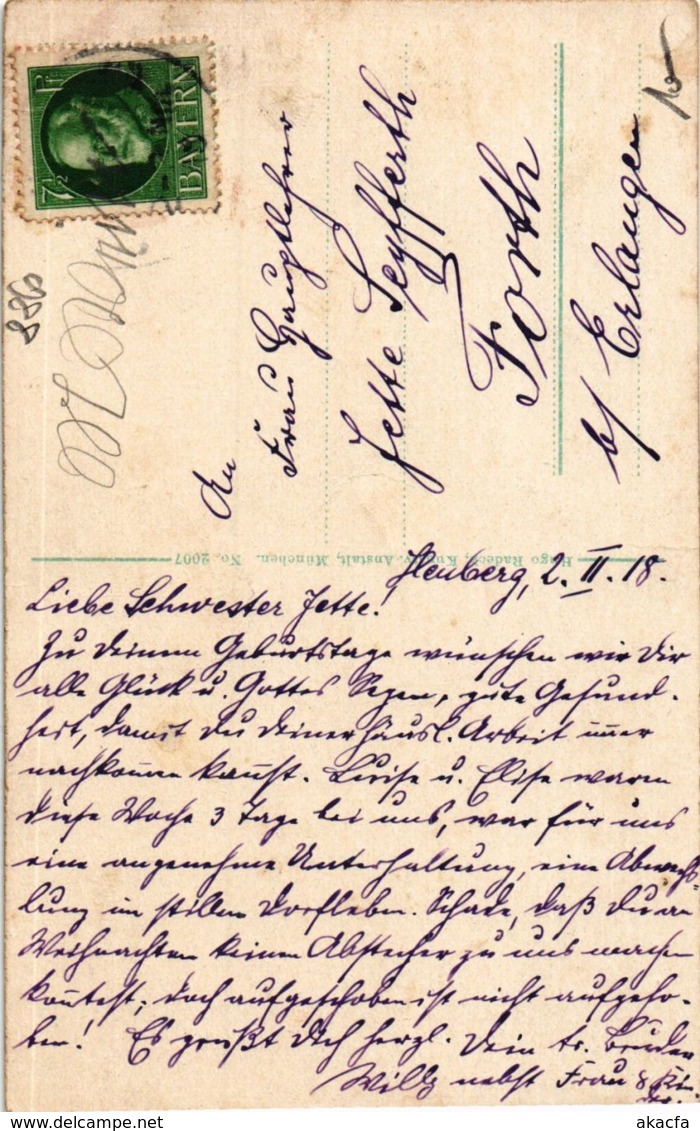 7½ Pf
BAYERN
886
10
An
Frau Hauptlehrer
Jette Seyfferth
Forth
b/ Erlangen
Hugo Radeck, Kunstv. Anstalt, München. No. 2007
Heuberg, 2. II. 18.
Liebe Schwester Jette!
Zu deinem Geburtstage wünschen wir dir
alle Glück u. Gottes Segen, gute Gesund-
heit, damit du deiner häusl. Arbeit im̅er
nachkom̅en kan̅st. Luise u. Elise waren
diese Woche 3 Tage bei uns, war für uns
eine angenehme Unterhaltung, eine Abwechs-
lung im stillen Dorfleben. Schade, daß du an
Weihnachten keinen Abstecher zu uns machen
kon̅test; doch aufgeschoben ist nicht aufgeho-
ben! Es grüßt dich herzl. Dein tr. Bruder
Willy nebst Frau & Kin-
der.
www.delcampe.net
akacfa